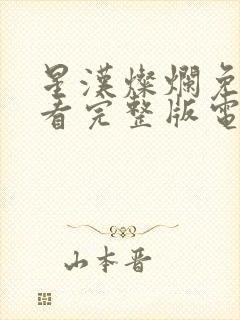 星漢燦爛免
看完整版電
山本晋